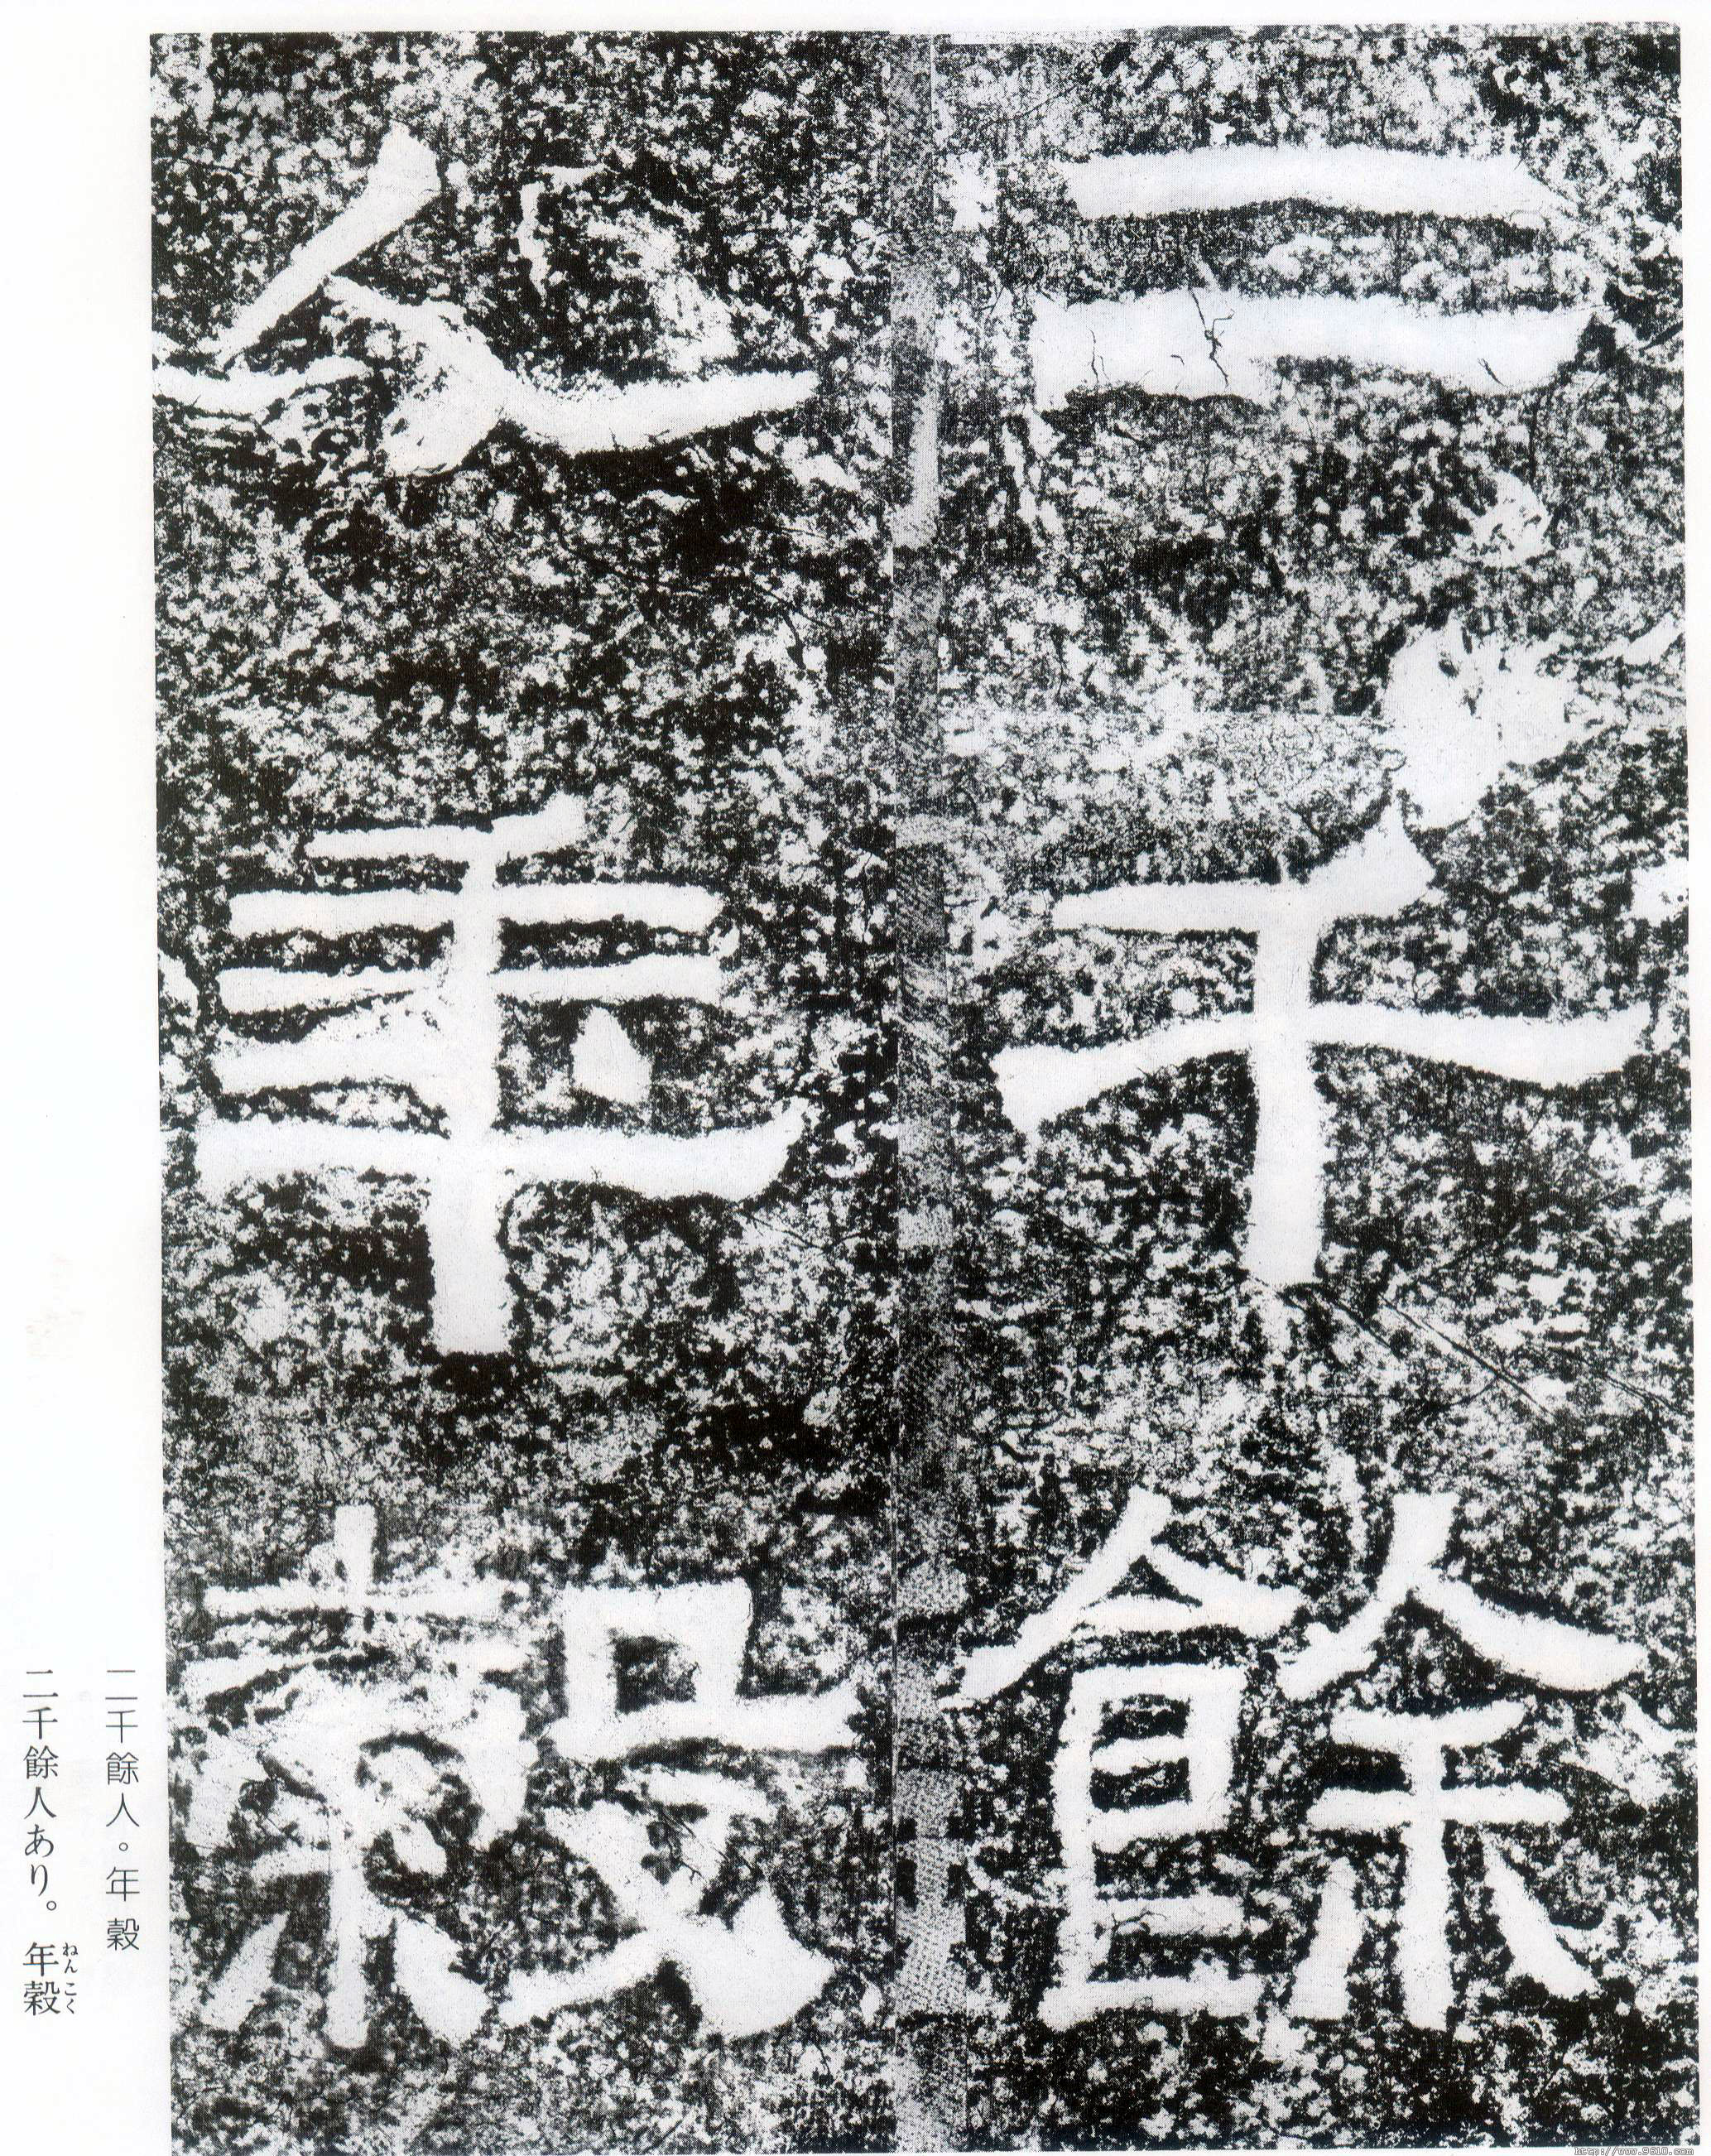 二千餘
人年穀
二千餘人。年穀
二千餘人あり。年穀
ねんこく
http://www.9610.com